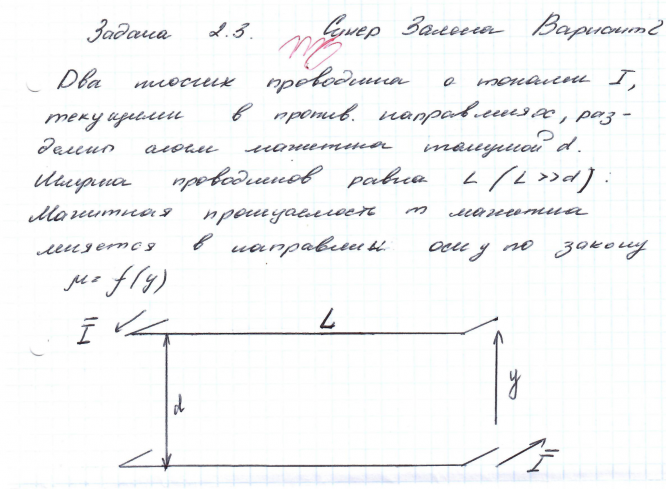 Задача 2.3. Супер Залома Вариант 2
Два плоских проводника с токами I,
текущими в против. направлениях, раз-
делены слоем магнетика толщиной d.
Ширина проводников равна L (L>>d).
Магнитная проницаемость магнетика
меняется в направлении оси y по закону
μ = f(y)
I L
d y
I